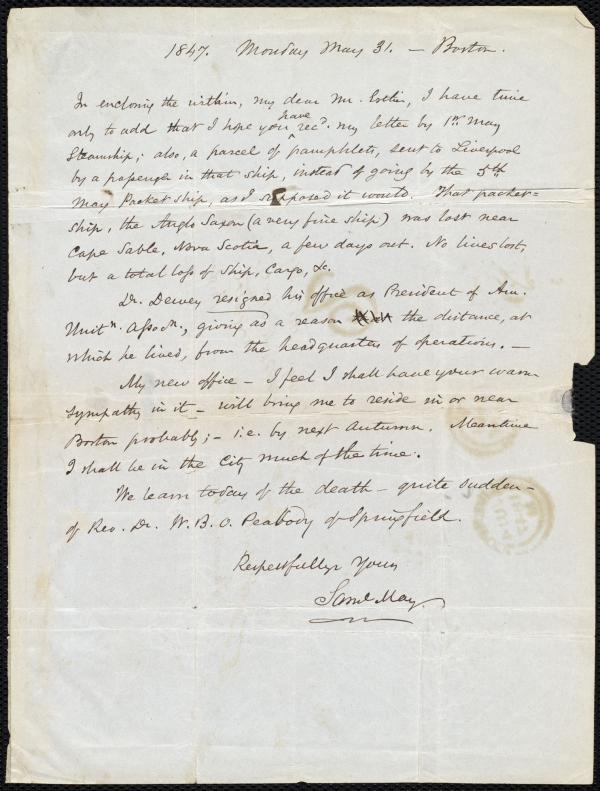 1847. Monday May 31. — Boston.
In enclosing the within, my dear Mr. Estlin, I have time
only to add that I hope you have recd. my letter by 1st. May
Steamship; also, a parcel of pamphlets, sent to Liverpool
by a passenger in that ship, instead of going by the 5th
May Packet ship, as I supposed it would. That packet-
ship, the Anglo Saxon (a very fine ship) was lost near
Cape Sable, Nova Scotia, a few days out. No lives lost,
but a total loss of Ship, Cargo, &c.
Dr. Dewey resigned his office as President of Am.
Unitn. Assocn., giving as a reason the distance, at
which he lived, from the headquarters of operations. —
My new office — I feel I shall have your warm
sympathy in it — will bring me to reside in or near
Boston probably; — i.e. by next Autumn. Meantime
I shall be in the City much of the time.
We learn today of the death — quite sudden —
of Rev. Dr. W. B. O. Peabody of Springfield.
Respectfully Yours
Saml May.